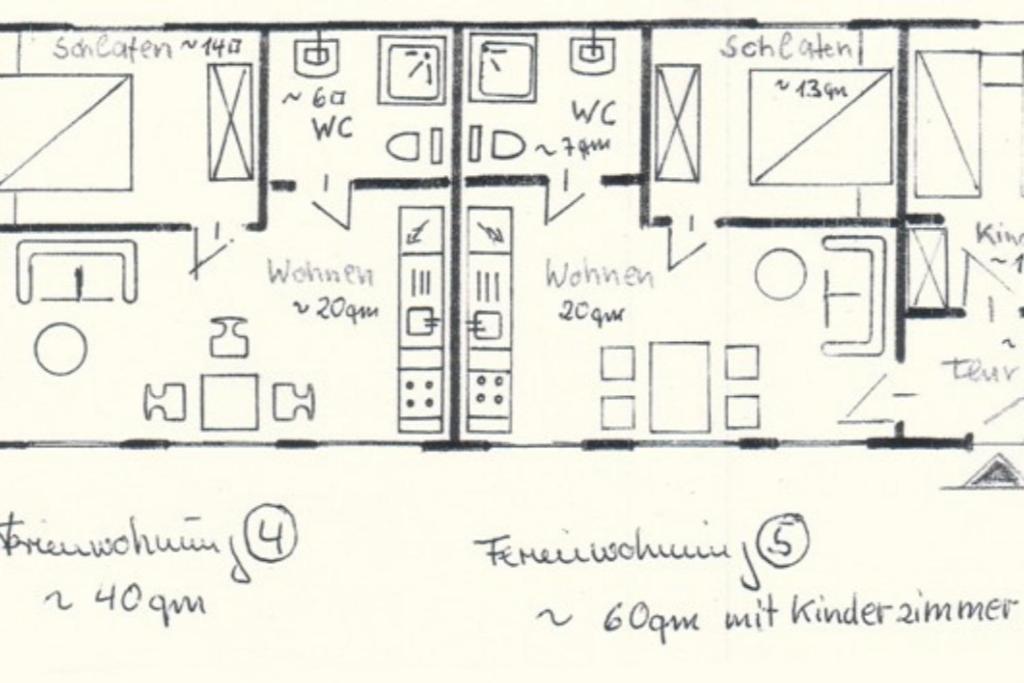 Schlafen ~14□
~6□
WC
WC
~7qm
Schlafen
~13qm
Wohnen
~20qm
Wohnen
20qm
Ferienwohnung 4
~ 40qm
Ferienwohnung 5
~ 60qm mit Kinderzimmer